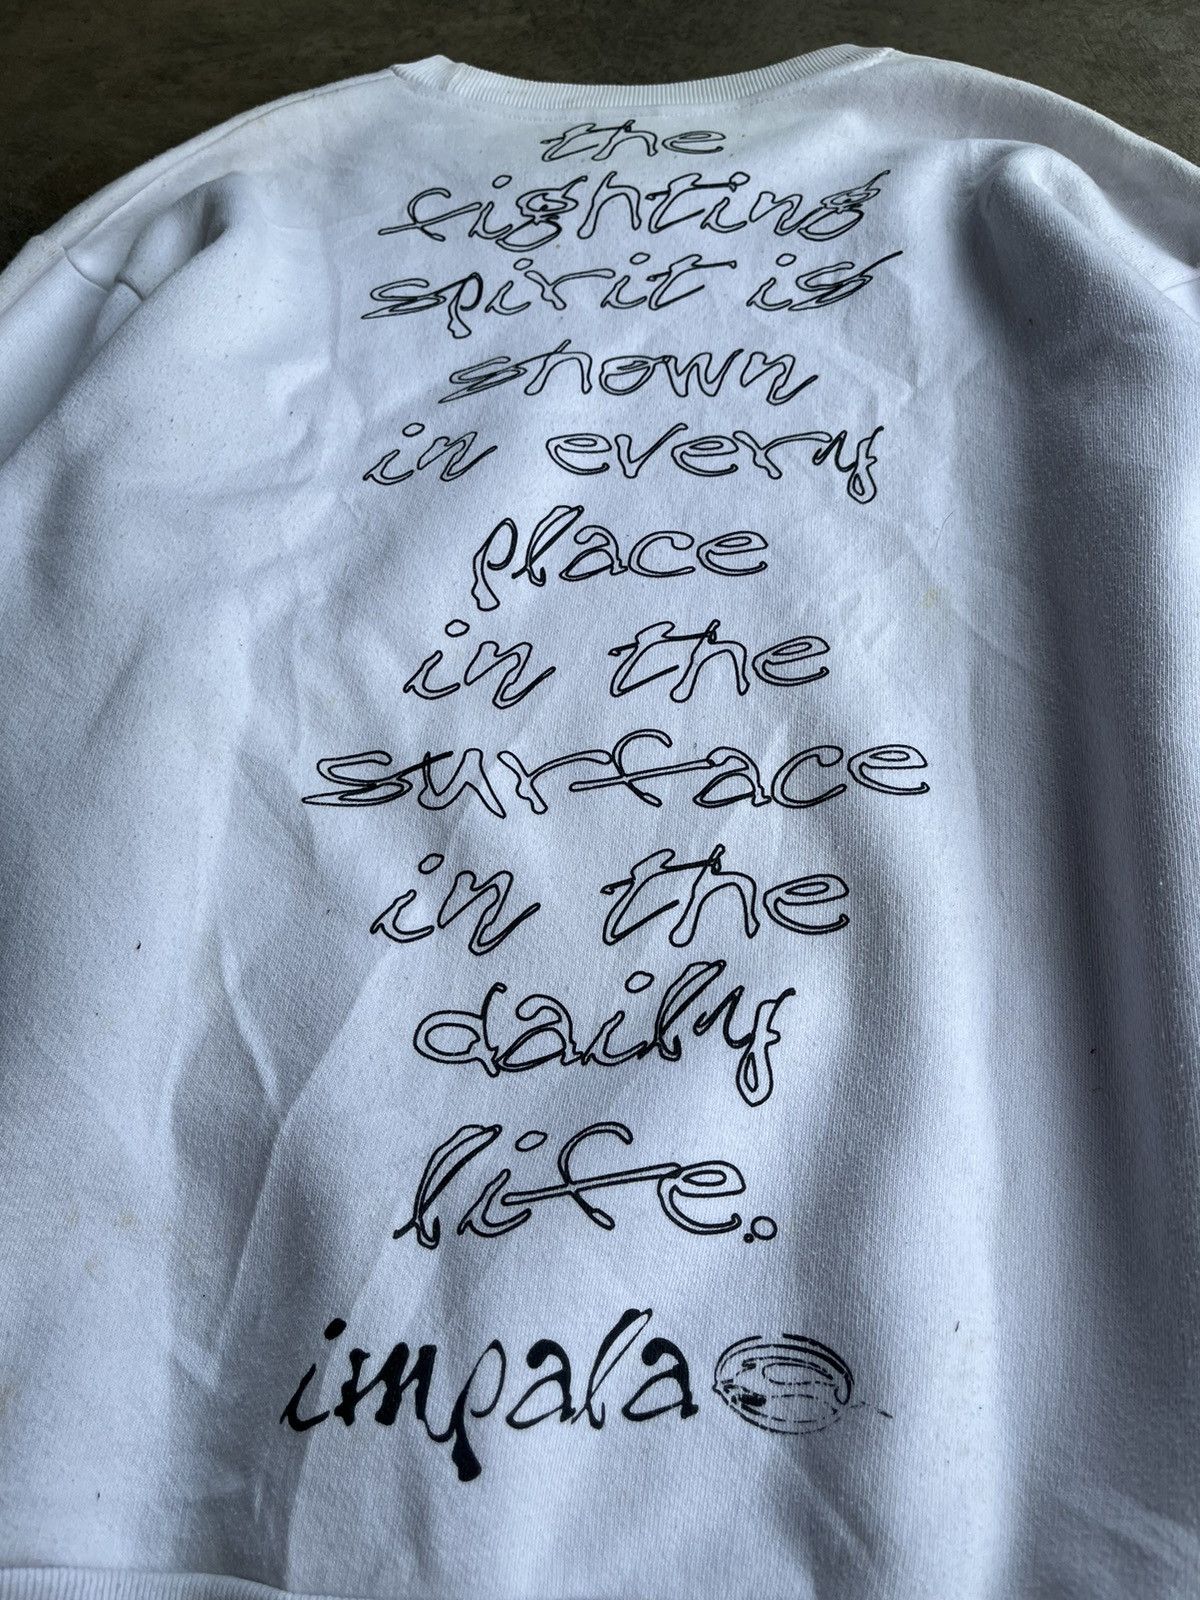 the
fighting
spirit is
shown
in every
place
in the
surface
in the
daily
life.
impala